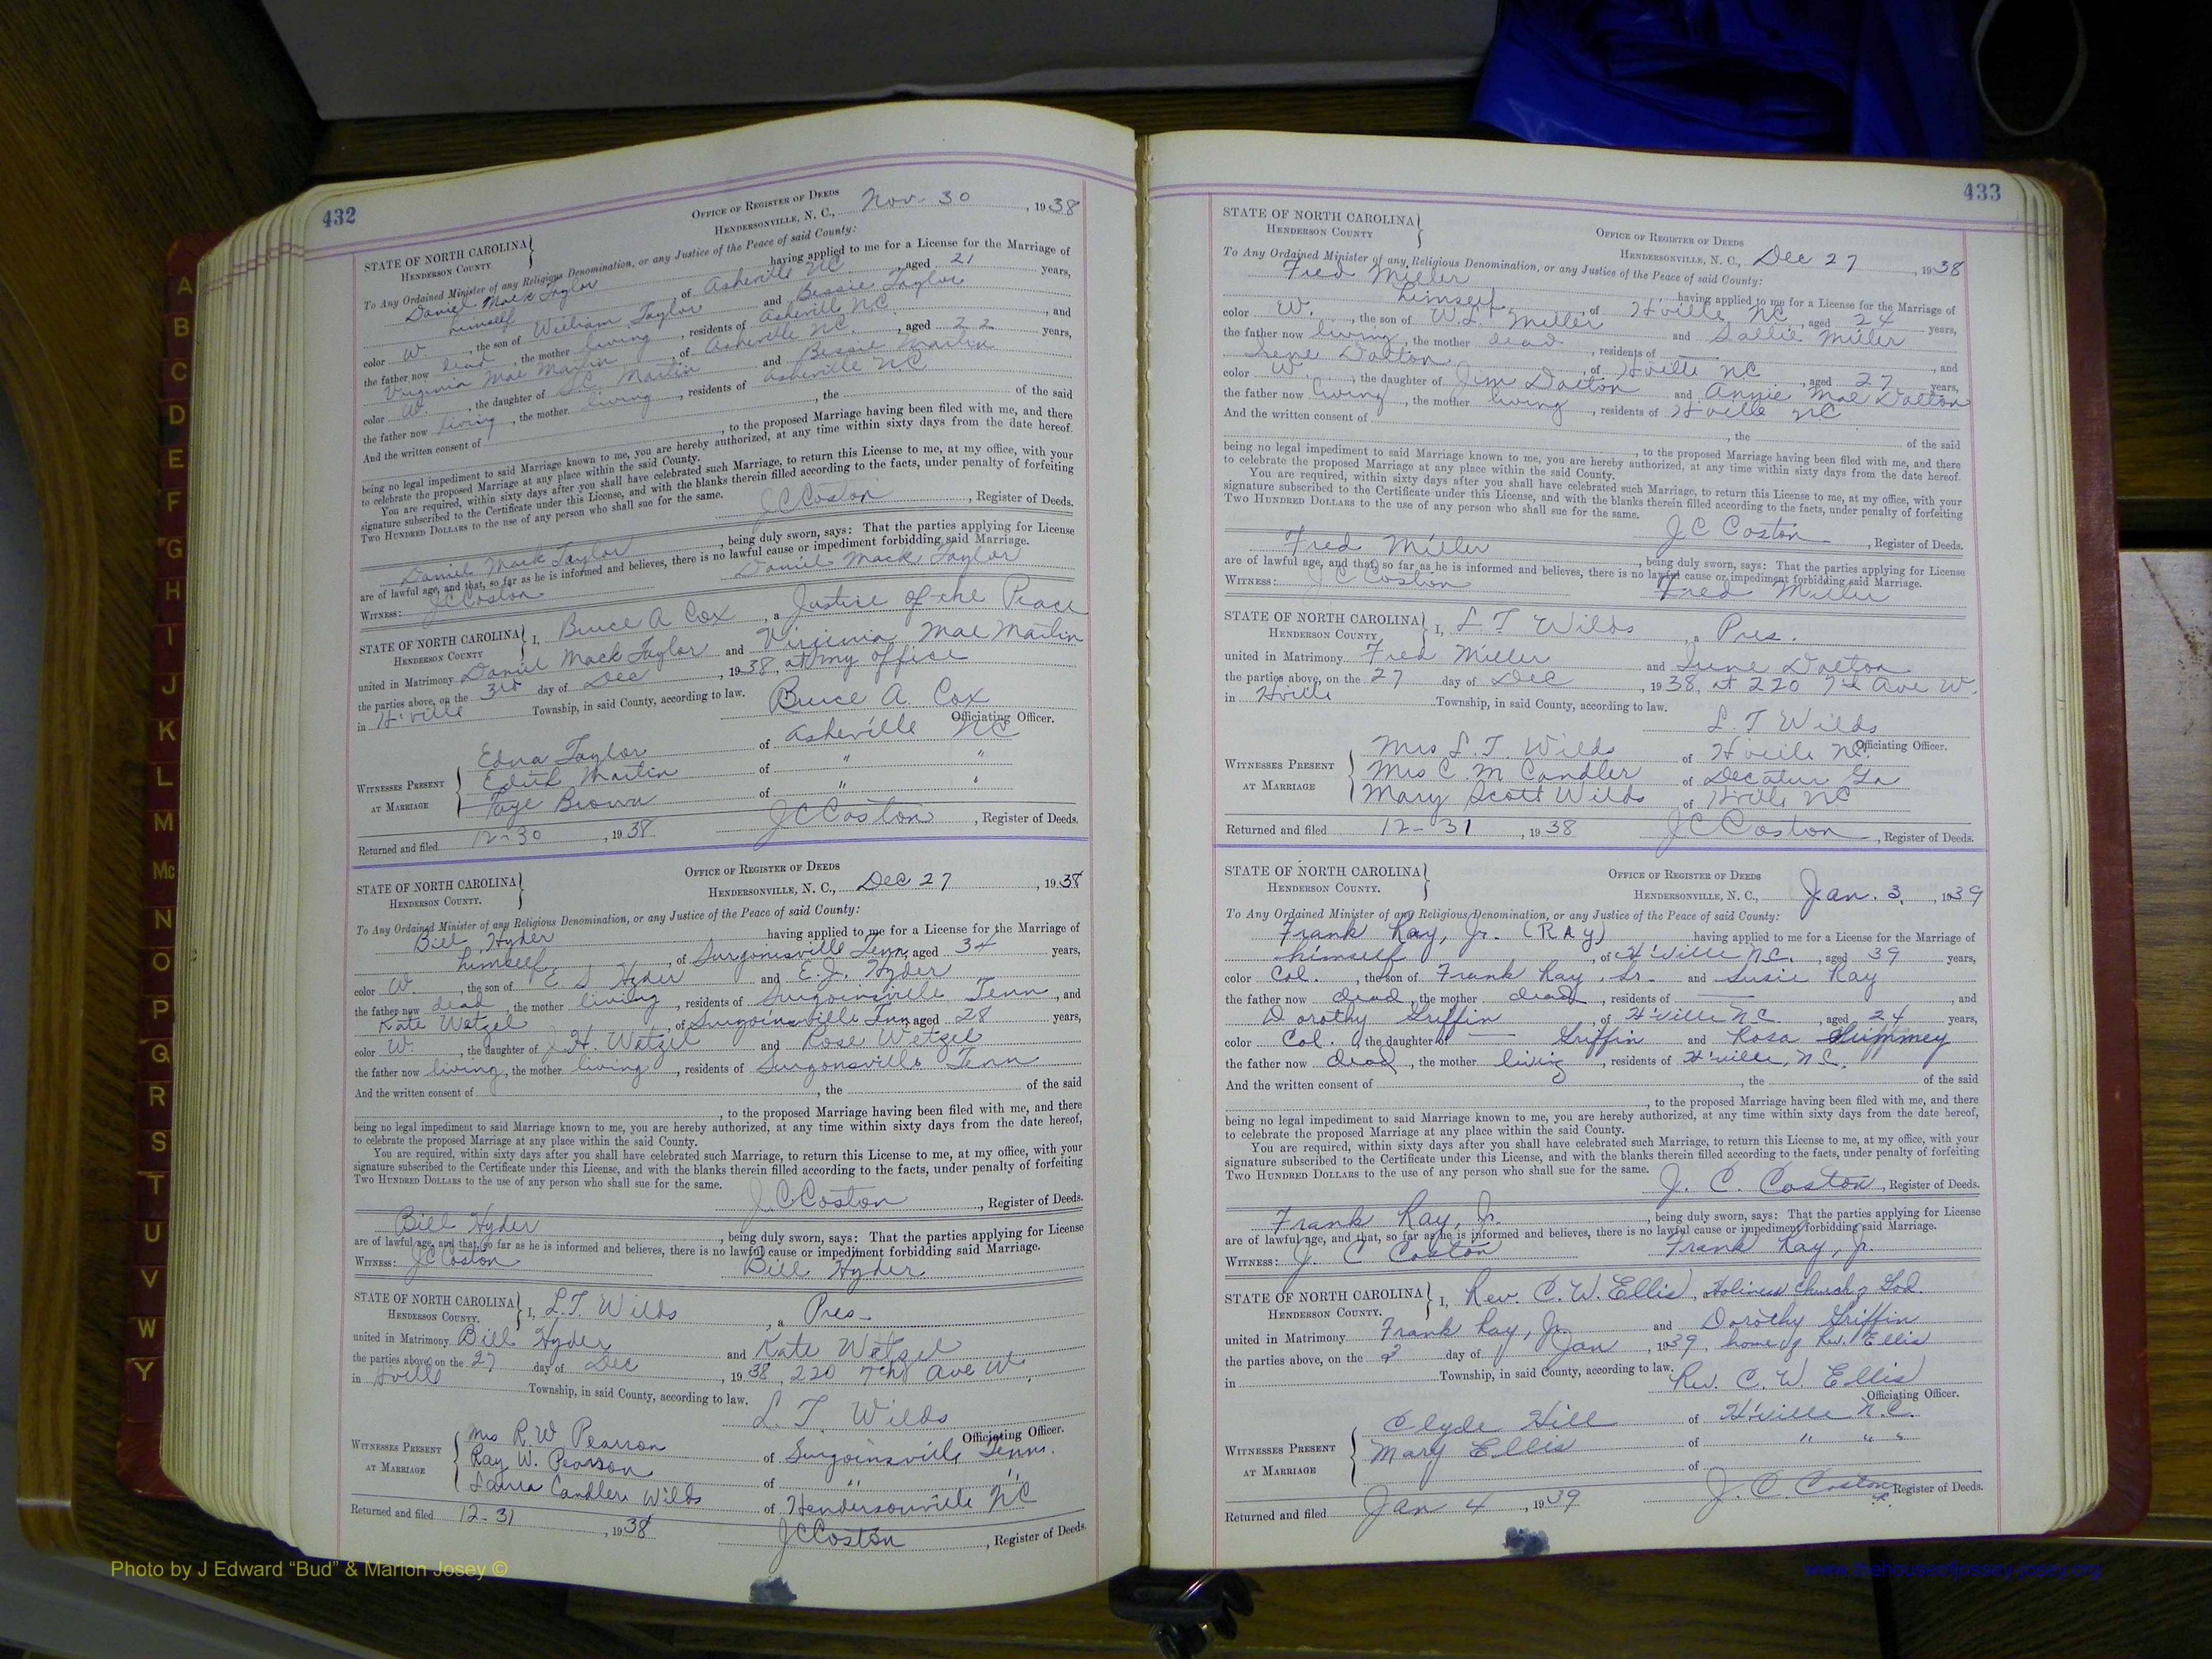 432
OFFICE OF REGISTER OF DEEDS
STATE OF NORTH CAROLINA
HENDERSON COUNTY
HENDERSONVILLE, N. C., Nov. 30, 1938
To Any Ordained Minister of any Religious Denomination, or any Justice of the Peace of said County:
Daniel Mack Taylor having applied to me for a License for the Marriage of
himself, of Asheville NC, aged 21 years,
color W., the son of William Taylor and Bessie Taylor
the father now dead, the mother living, residents of Asheville N.C., and
Virginia Mae Martin, of Asheville NC., aged 22 years,
color W., the daughter of Martin and Bessie Martin
the father now living, the mother living, residents of Asheville NC
And the written consent of , the of the said
, to the proposed Marriage having been filed with me, and there
being no legal impediment to said Marriage known to me, you are hereby authorized, at any time within sixty days from the date hereof,
to celebrate the proposed Marriage at any place within the said County.
You are required, within sixty days after you shall have celebrated such Marriage, to return this License to me, at my office, with your
signature subscribed to the Certificate under this License, and with the blanks therein filled according to the facts, under penalty of forfeiting
TWO HUNDRED DOLLARS to the use of any person who shall sue for the same.
J C Coston, Register of Deeds.
Daniel Mack Taylor, being duly sworn, says: That the parties applying for License
are of lawful age, and that, so far as he is informed and believes, there is no lawful cause or impediment forbidding said Marriage.
WITNESS: J C Coston Daniel Mack Taylor
STATE OF NORTH CAROLINA
HENDERSON COUNTY
I, Bruce A Cox, a Justice of the Peace
united in Matrimony Daniel Mack Taylor and Virginia Mae Martin
the parties above, on the 3rd day of Dec, 1938, at my office
in H'ville Township, in said County, according to law.
Bruce A. Cox
Officiating Officer.
WITNESSES PRESENT AT MARRIAGE
Edna Taylor of Asheville NC
Edith Martin of " "
Faye Brown of " "
Returned and filed 12-30, 1938 J C Coston, Register of Deeds.
OFFICE OF REGISTER OF DEEDS
STATE OF NORTH CAROLINA
HENDERSON COUNTY.
HENDERSONVILLE, N. C., Dec 27, 1938
To Any Ordained Minister of any Religious Denomination, or any Justice of the Peace of said County:
Bill Hyder having applied to me for a License for the Marriage of
himself, of Surgoinsville Tenn, aged 34 years,
color W., the son of E S Hyder and E. J. Hyder
the father now dead, the mother living, residents of Surgoinsville Tenn, and
Kate Wetzel, of Surgoinsville Tenn, aged 28 years,
color W., the daughter of J. H. Wetzel and Rose Wetzel
the father now living, the mother living, residents of Surgonsville Tenn
And the written consent of , the of the said
, to the proposed Marriage having been filed with me, and there
being no legal impediment to said Marriage known to me, you are hereby authorized, at any time within sixty days from the date hereof,
to celebrate the proposed Marriage at any place within the said County.
You are required, within sixty days after you shall have celebrated such Marriage, to return this License to me, at my office, with your
signature subscribed to the Certificate under this License, and with the blanks therein filled according to the facts, under penalty of forfeiting
TWO HUNDRED DOLLARS to the use of any person who shall sue for the same.
J C Coston, Register of Deeds.
Bill Hyder, being duly sworn, says: That the parties applying for License
are of lawful age, and that, so far as he is informed and believes, there is no lawful cause or impediment forbidding said Marriage.
WITNESS: J C Coston Bill Hyder
STATE OF NORTH CAROLINA
HENDERSON COUNTY.
I, L. T. Wilds, a Pres-
united in Matrimony Bill Hyder and Kate Wetzel
the parties above, on the 27 day of Dec, 1938, 220 7th Ave W.
in Hville Township, in said County, according to law.
L. T. Wilds
Officiating Officer.
WITNESSES PRESENT AT MARRIAGE
Mrs R. W Pearson of Surgoinsville Tenn.
Ray W. Pearson of " "
Laura Candler Wilds of Hendersonville NC
Returned and filed 12-31, 1938 J C Coston, Register of Deeds.
433
STATE OF NORTH CAROLINA
HENDERSON COUNTY
OFFICE OF REGISTER OF DEEDS
HENDERSONVILLE, N. C., Dec 27, 1938
To Any Ordained Minister of any Religious Denomination, or any Justice of the Peace of said County:
Fred Miller having applied to me for a License for the Marriage of
himself, of H'ville, NC, aged 24 years,
color W., the son of W. L. Miller and Sallie Miller
the father now living, the mother dead, residents of —, and
Irene Dalton, of H'ville NC, aged 27 years,
color W., the daughter of Jim Dalton and Annie Mae Dalton
the father now living, the mother living, residents of H'ville NC
And the written consent of
, the of the said
, to the proposed Marriage having been filed with me, and there
being no legal impediment to said Marriage known to me, you are hereby authorized, at any time within sixty days from the date hereof,
to celebrate the proposed Marriage at any place within the said County.
You are required, within sixty days after you shall have celebrated such Marriage, to return this License to me, at my office, with your
signature subscribed to the Certificate under this License, and with the blanks therein filled according to the facts, under penalty of forfeiting
TWO HUNDRED DOLLARS to the use of any person who shall sue for the same.
J C Coston, Register of Deeds.
Fred Miller, being duly sworn, says: That the parties applying for License
are of lawful age, and that, so far as he is informed and believes, there is no lawful cause or impediment forbidding said Marriage.
WITNESS: J C Coston Fred Miller
STATE OF NORTH CAROLINA
HENDERSON COUNTY
I, L. T Wilds, a Pres.
united in Matrimony Fred Miller and Irene Dalton
the parties above, on the 27 day of Dec, 1938, at 220 7th Ave W.
in Hville Township, in said County, according to law.
L. T Wilds
Officiating Officer.
WITNESSES PRESENT AT MARRIAGE
Mrs L. T. Wilds of H'ville NC
Mrs C. M Candler of Decatur Ga
Mary Scott Wilds of H'ville NC
Returned and filed 12-31, 1938 J C Coston, Register of Deeds.
STATE OF NORTH CAROLINA
HENDERSON COUNTY.
OFFICE OF REGISTER OF DEEDS
HENDERSONVILLE, N. C., Jan. 3, 1939
To Any Ordained Minister of any Religious Denomination, or any Justice of the Peace of said County:
Frank Ray, Jr. (RAy) having applied to me for a License for the Marriage of
himself, of H'ville N.C., aged 39 years,
color Col., the son of Frank Ray, Sr. and Susie Ray
the father now dead, the mother dead, residents of —, and
Dorothy Griffin, of H'ville NC, aged 24 years,
color Col., the daughter of — Griffin and Rosa
the father now dead, the mother living, residents of H'ville, N.C.
And the written consent of , the of the said
, to the proposed Marriage having been filed with me, and there
being no legal impediment to said Marriage known to me, you are hereby authorized, at any time within sixty days from the date hereof,
to celebrate the proposed Marriage at any place within the said County.
You are required, within sixty days after you shall have celebrated such Marriage, to return this License to me, at my office, with your
signature subscribed to the Certificate under this License, and with the blanks therein filled according to the facts, under penalty of forfeiting
TWO HUNDRED DOLLARS to the use of any person who shall sue for the same.
J. C. Coston, Register of Deeds.
Frank Ray, Jr., being duly sworn, says: That the parties applying for License
are of lawful age, and that, so far as he is informed and believes, there is no lawful cause or impediment forbidding said Marriage.
WITNESS: J. C Coston Frank Ray, Jr.
STATE OF NORTH CAROLINA
HENDERSON COUNTY.
I, Rev. C. W. Ellis, Holiness Church of God.
united in Matrimony Frank Ray, Jr. and Dorothy Griffin
the parties above, on the 3 day of Jan, 1939, home of Rev. Ellis
in Township, in said County, according to law.
Rev. C. W. Ellis
Officiating Officer.
WITNESSES PRESENT AT MARRIAGE
Clyde Hill of H'ville N.C.
Mary Ellis of " " "
of
Returned and filed Jan 4, 1939 J. C. Coston, Register of Deeds.
A
B
C
D
E
F
G
H
I
J
K
L
M
Mc
N
O
P
Q
R
S
T
U
V
W
Y
Photo by J Edward "Bud" & Marion Josey ©
www.thehouseofjossey-josey.org